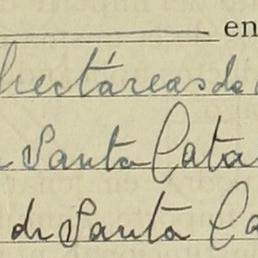 en
hectáreas de
Santa Cata
de Santa Ca